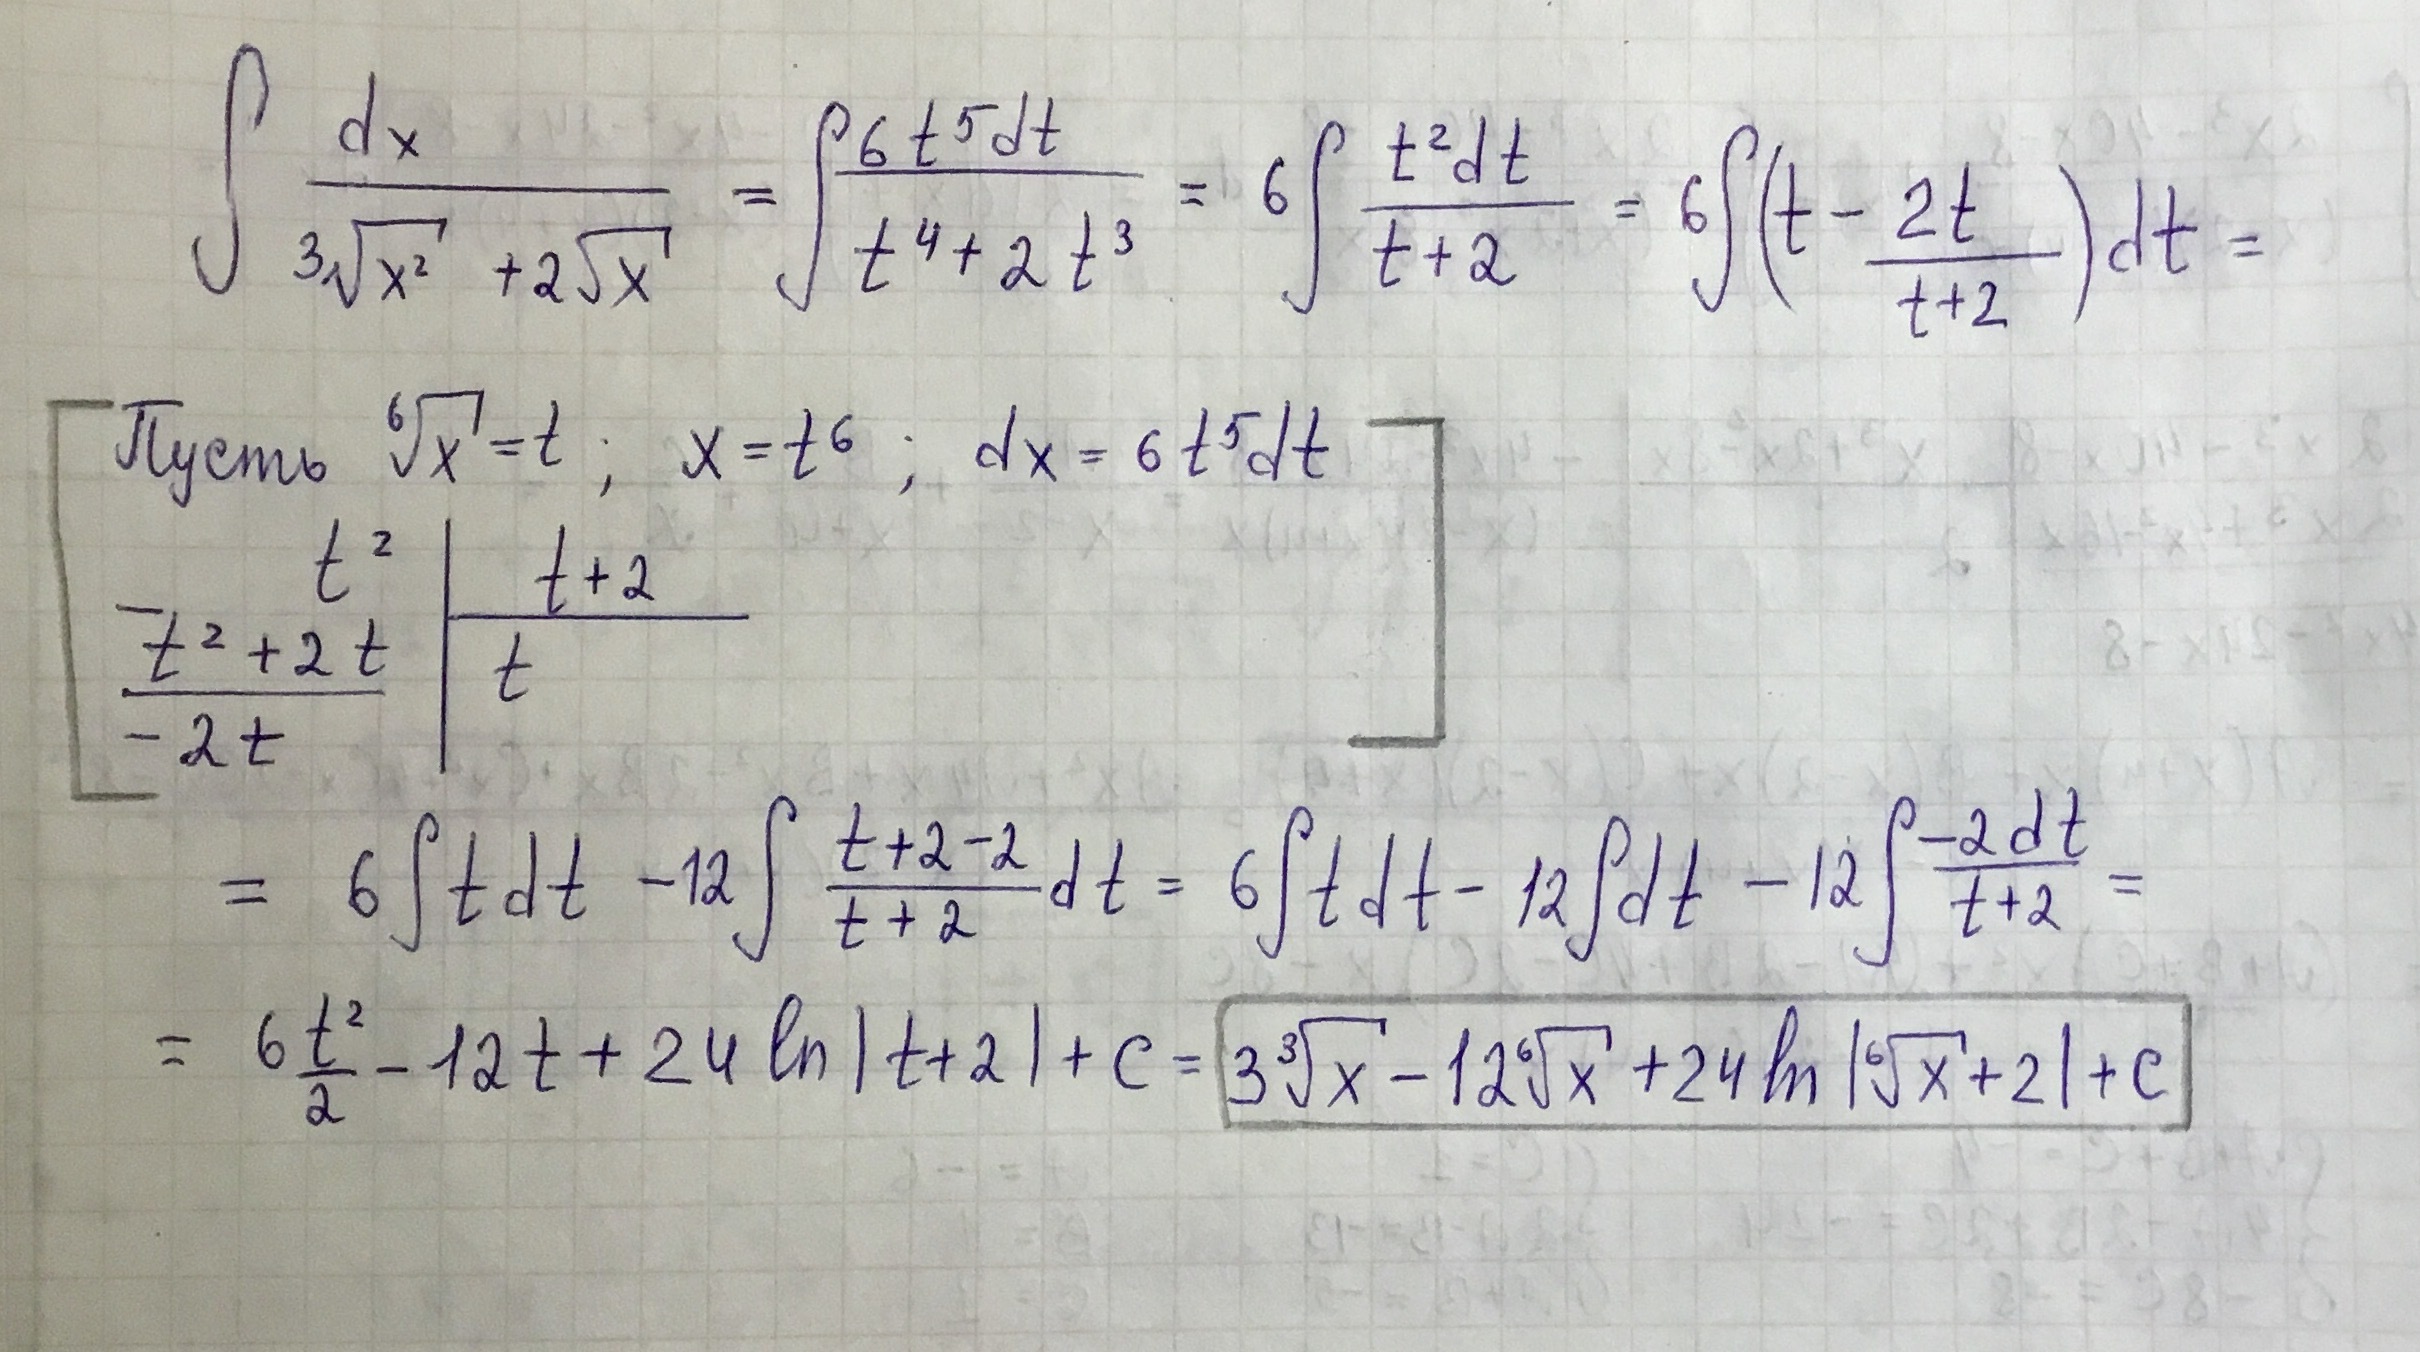 ∫ dx / (³√x² + 2√x) = ∫ 6t⁵dt / (t⁴ + 2t³) = 6∫ t²dt / (t+2) = 6∫(t − 2t/(t+2))dt =
Пусть ⁶√x = t; x = t⁶; dx = 6t⁵dt
t² | t+2
− t² + 2t | t
−2t
= 6∫tdt − 12∫ (t+2−2)/(t+2) dt = 6∫tdt − 12∫dt − 12∫ −2dt/(t+2) =
= 6 t²/2 − 12t + 24 ln|t+2| + C = 3³√x − 12⁶√x + 24 ln|⁶√x + 2| + C